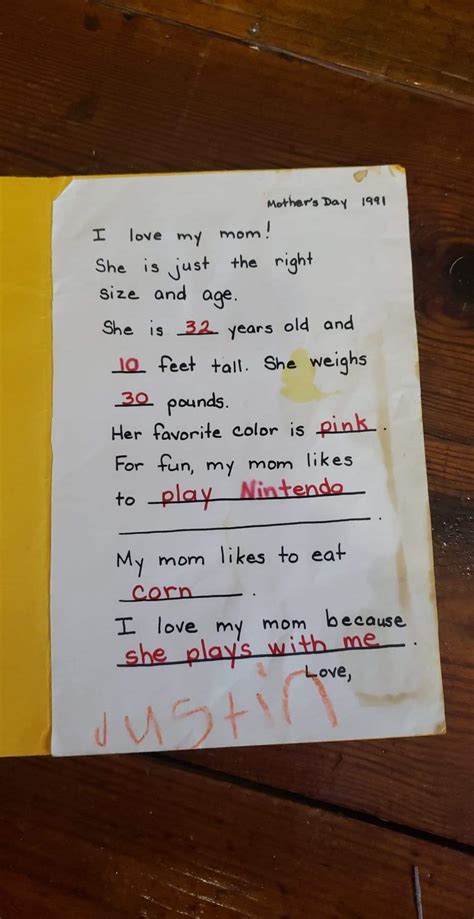 Mother's Day 1991
I love my mom!
She is just the right
size and age.
She is 32 years old and
10 feet tall. She weighs
30 pounds.
Her favorite color is pink.
For fun, my mom likes
to play Nintendo
.
My mom likes to eat
corn.
I love my mom because
she plays with me.
Love,
Justin